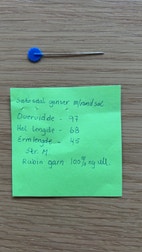 genser m/rundsal
Overvidde - 97
Hel lengde - 68
Ermlengde - 45
Str. M.
Rubin garn 100% ny ull.